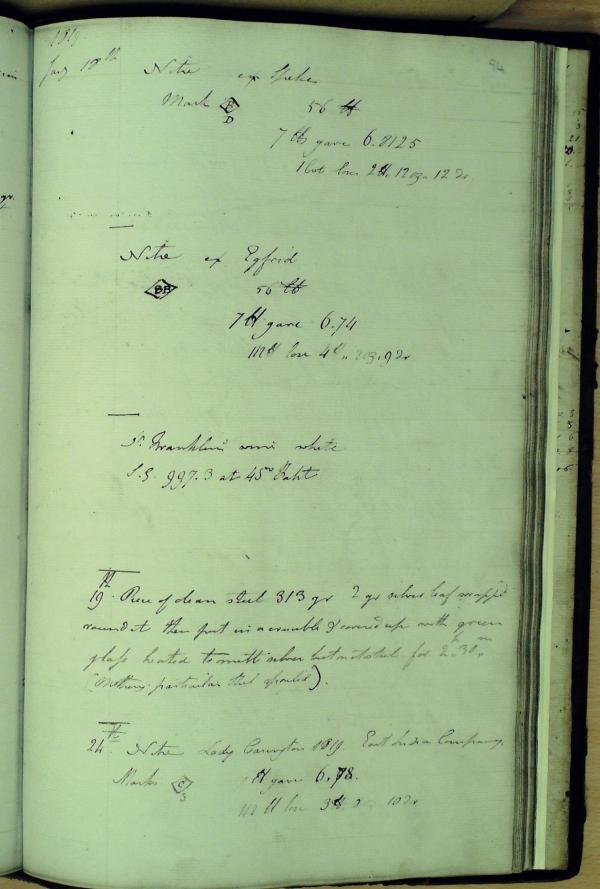 1819
94
Jany 18th Nitre ex Speke
Mark D 56 lb
7 lbs gave 6.8125
1 Cwt lose 2 lb, 12 oz, 12 dr
Nitre ex Egfrid
BB 56 lb
7 lb gave 6.74
112 lb lose 4 lb, 2 oz, 9 dr
Dr Franklin's wine white
S.G. 997.3 at 45° Faht
19th Piece of clean steel 313 gr 2 gr silver leaf wrapped
round it then put in a crucible & covered up with green
glass heated to melt silver but not steel for 2h 30m
(Nothing particular steel spoiled).
24th Nitre Lady Carington 1819. East India Company.
Marks C 3 lb gave 6.78.
112 lb lose 3 lb 10 dr